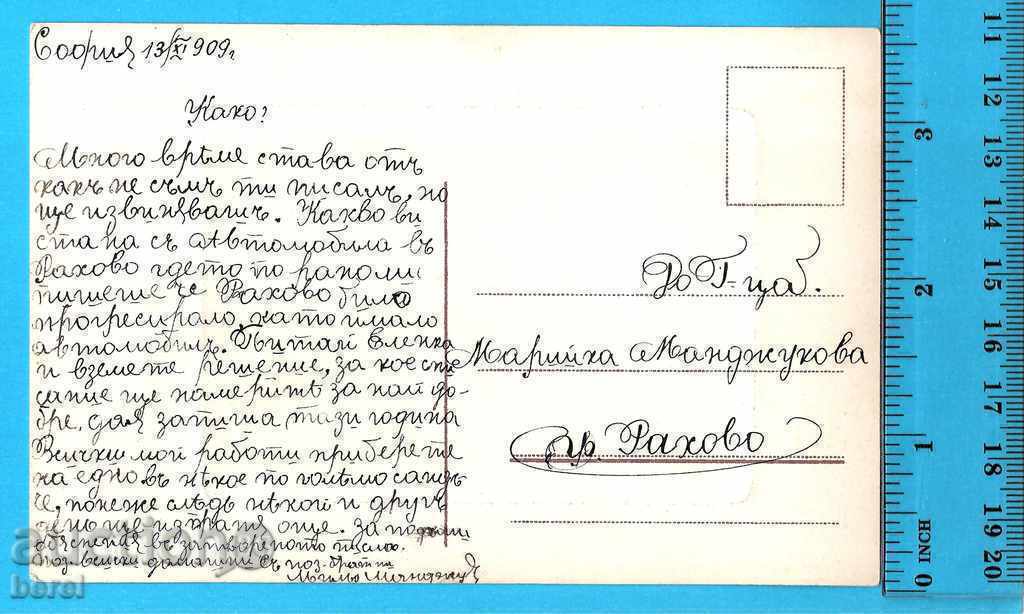 София 13/XI 909г
Како?
Много врѣме става отъ
какъ не съмъ ти писалъ, но
ще извинявашъ. Какво ви
стана съ Автомобила въ
Рахово гдето по
пишеше че Рахово било
прогресирало, като имало
автомобилъ. Питай Еленка
и вземете решение, за кое спи
сание ще намерите за най до-
бре, да я запиша тази година
Всички мои работи приберете
на едно въ нѣкое по голѣмо сандъ
че, понеже слѣдъ нѣкой и другъ
день ще изпратя още. За по
обяснения въ затвореното писмо.
поз. всички домашни съ поз. братъ ти
До Г-ца б.
Марийка Манджукова
гр Рахово
auction
berel
0 INCH 1 2 3
11 12 13 14 15 16 17 18 19 20